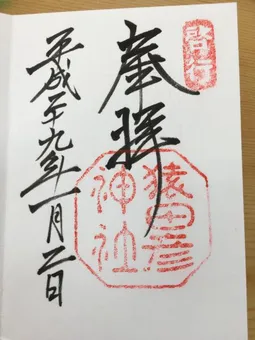 啓行
奉拝
猿田彦
神社
平成廿九年一月二日